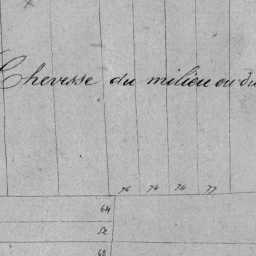 Chevesse du milieu ou du
76 74 76 77
64
52
60